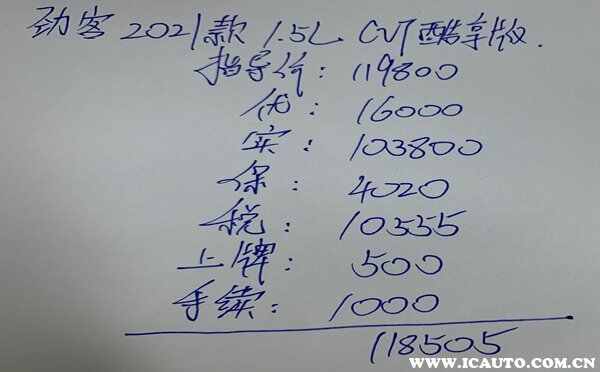 劲客2021款 1.5L CVT酷享版.
指导价: 119800
优: 16000
实: 103800
保: 4020
税: 10555
上牌: 500
手续: 1000
118505
WWW.ICAUTO.COM.CN